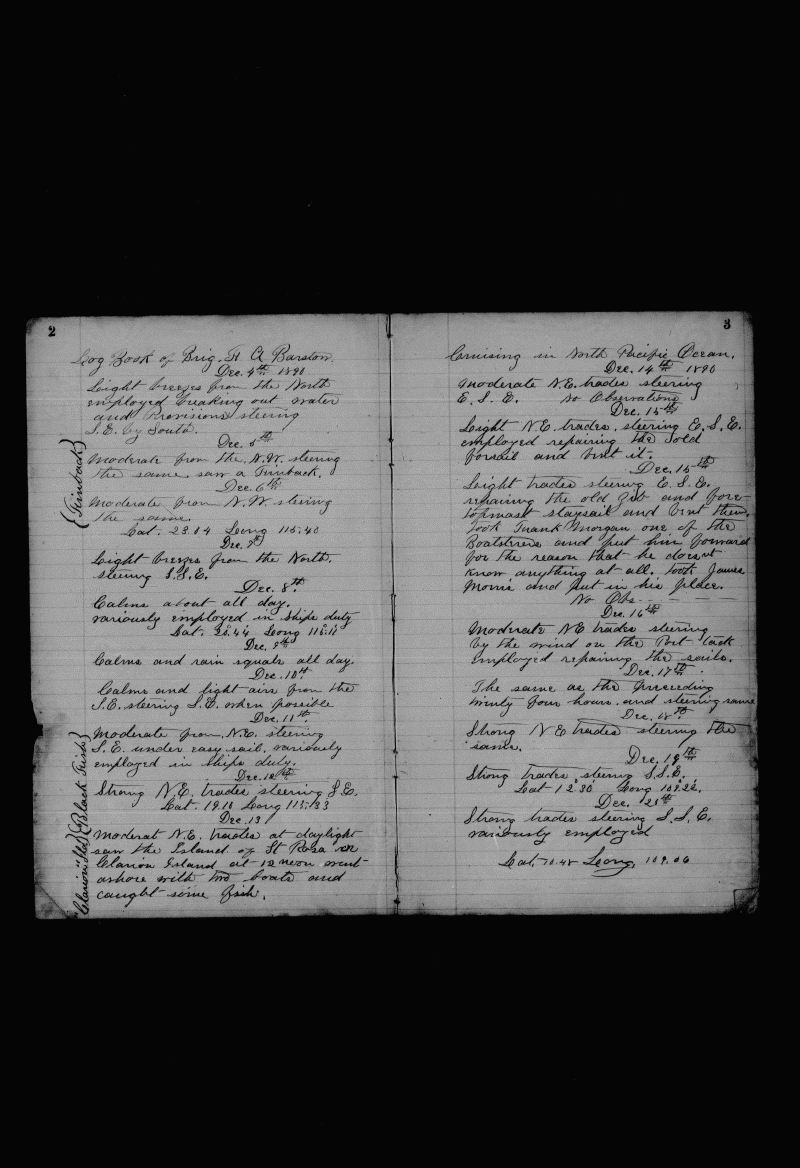 2
Log Book of Brig. F. A Barstow.
Dec. 4th 1890
Light breezes from the North
employed breaking out water
and Provisions steering
S.E. by South.
Dec. 5th
Moderate from the N.W. steering
the same. saw a Finback.
Dec. 6th
Moderate from N.W. steering
the same.
Lat. 23.04 Long 115.40
Dec. 7th
Light breezes from the North.
steering S.S.E.
Dec. 8th.
Calms about all day.
variously employed in Ships duty
Lat. 20.44 Long 115.11
Dec. 9th
Calms and rain squals all day.
Dec. 10th.
Calms and light airs from the
S.E. steering S.E. when possible
Dec. 11th.
Moderate from N.E. steering
S.E. under easy sail. variously
employed in ships duty.
Dec. 12th
Strong N.E. trades steering S.E.
Lat. 19.18 Long 115.23
Dec. 13
Moderat N.E. trades at daylight
saw the Island of St Rosa or
Clarion Island at 12 noon went
ashore with two boats and
caught some fish.
{Finback}
"Clarion" Isld} {Black Fish}
3
Cruising in North Pacific Ocean.
Dec. 14th 1890
Moderate N.E. trades steering
E. S. E. No Observations
Dec. 15th
Light N.E. trades. steering E.S.E.
employed repairing the old
forsail and bent it.
Dec. 15th
Light trades steering E.S.E.
repairing the old Jib and fore-
topmast staysail and bent them.
took Frank Morgan one of the
Boatsteers and put him forward
for the reason that he doesnt
know anything at all. took James
Morris and put in his place.
No Obs - - - -
Dec. 16th
Moderate NE trades steering
by the wind on the Port tack
employed repairing the sails.
Dec. 17th.
The same as the preceeding
twinty four hours. and steering same
Dec. 18th.
Strong N E trades steering the
same.
Dec. 19th
Strong trades, steering S.S.E.
Lat 12.30 Long 109.22.
Dec. 20th
Strong trades steering S.S.E.
variously employed
Lat. 10.48 Long. 109.06